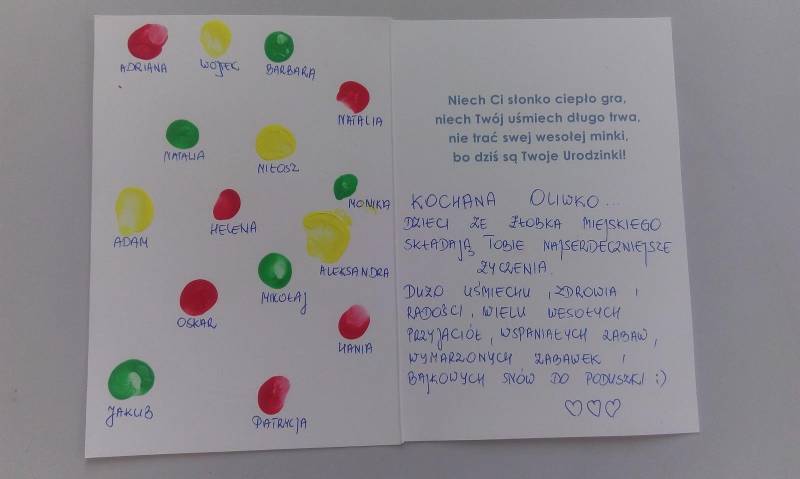 ADRIANA
WOJTEK
BARBARA
NATALIA
NATALIA
MIŁOSZ
MONIKA
ADAM
HELENA
ALEKSANDRA
MIKOŁAJ
OSKAR
HANIA
JAKUB
PATRYCJA
Niech Ci słonko ciepło gra,
niech Twój uśmiech długo trwa,
nie trać swej wesołej minki,
bo dziś są Twoje Urodzinki!
KOCHANA OLIWKO...
DZIECI ZE ŻŁOBKA MIEJSKIEGO
SKŁADAJĄ TOBIE NAJSERDECZNIEJSZE
ŻYCZENIA.
DUŻO UŚMIECHU, ZDROWIA I
RADOŚCI, WIELU WESOŁYCH
PRZYJACIÓŁ, WSPANIAŁYCH ZABAW,
WYMARZONYCH ZABAWEK I
BAJKOWYCH SNÓW DO PODUSZKI :)